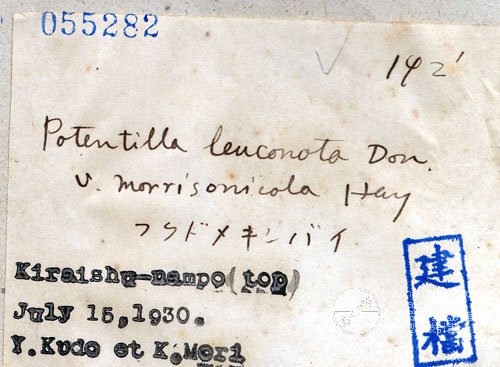 055282
√ 142'
Potentilla leuconota Don.
v. morrisonicola Hay
Kiraishu-nampo(top)
July 15,1930.
Y.Kudo et K.Mori
建檔